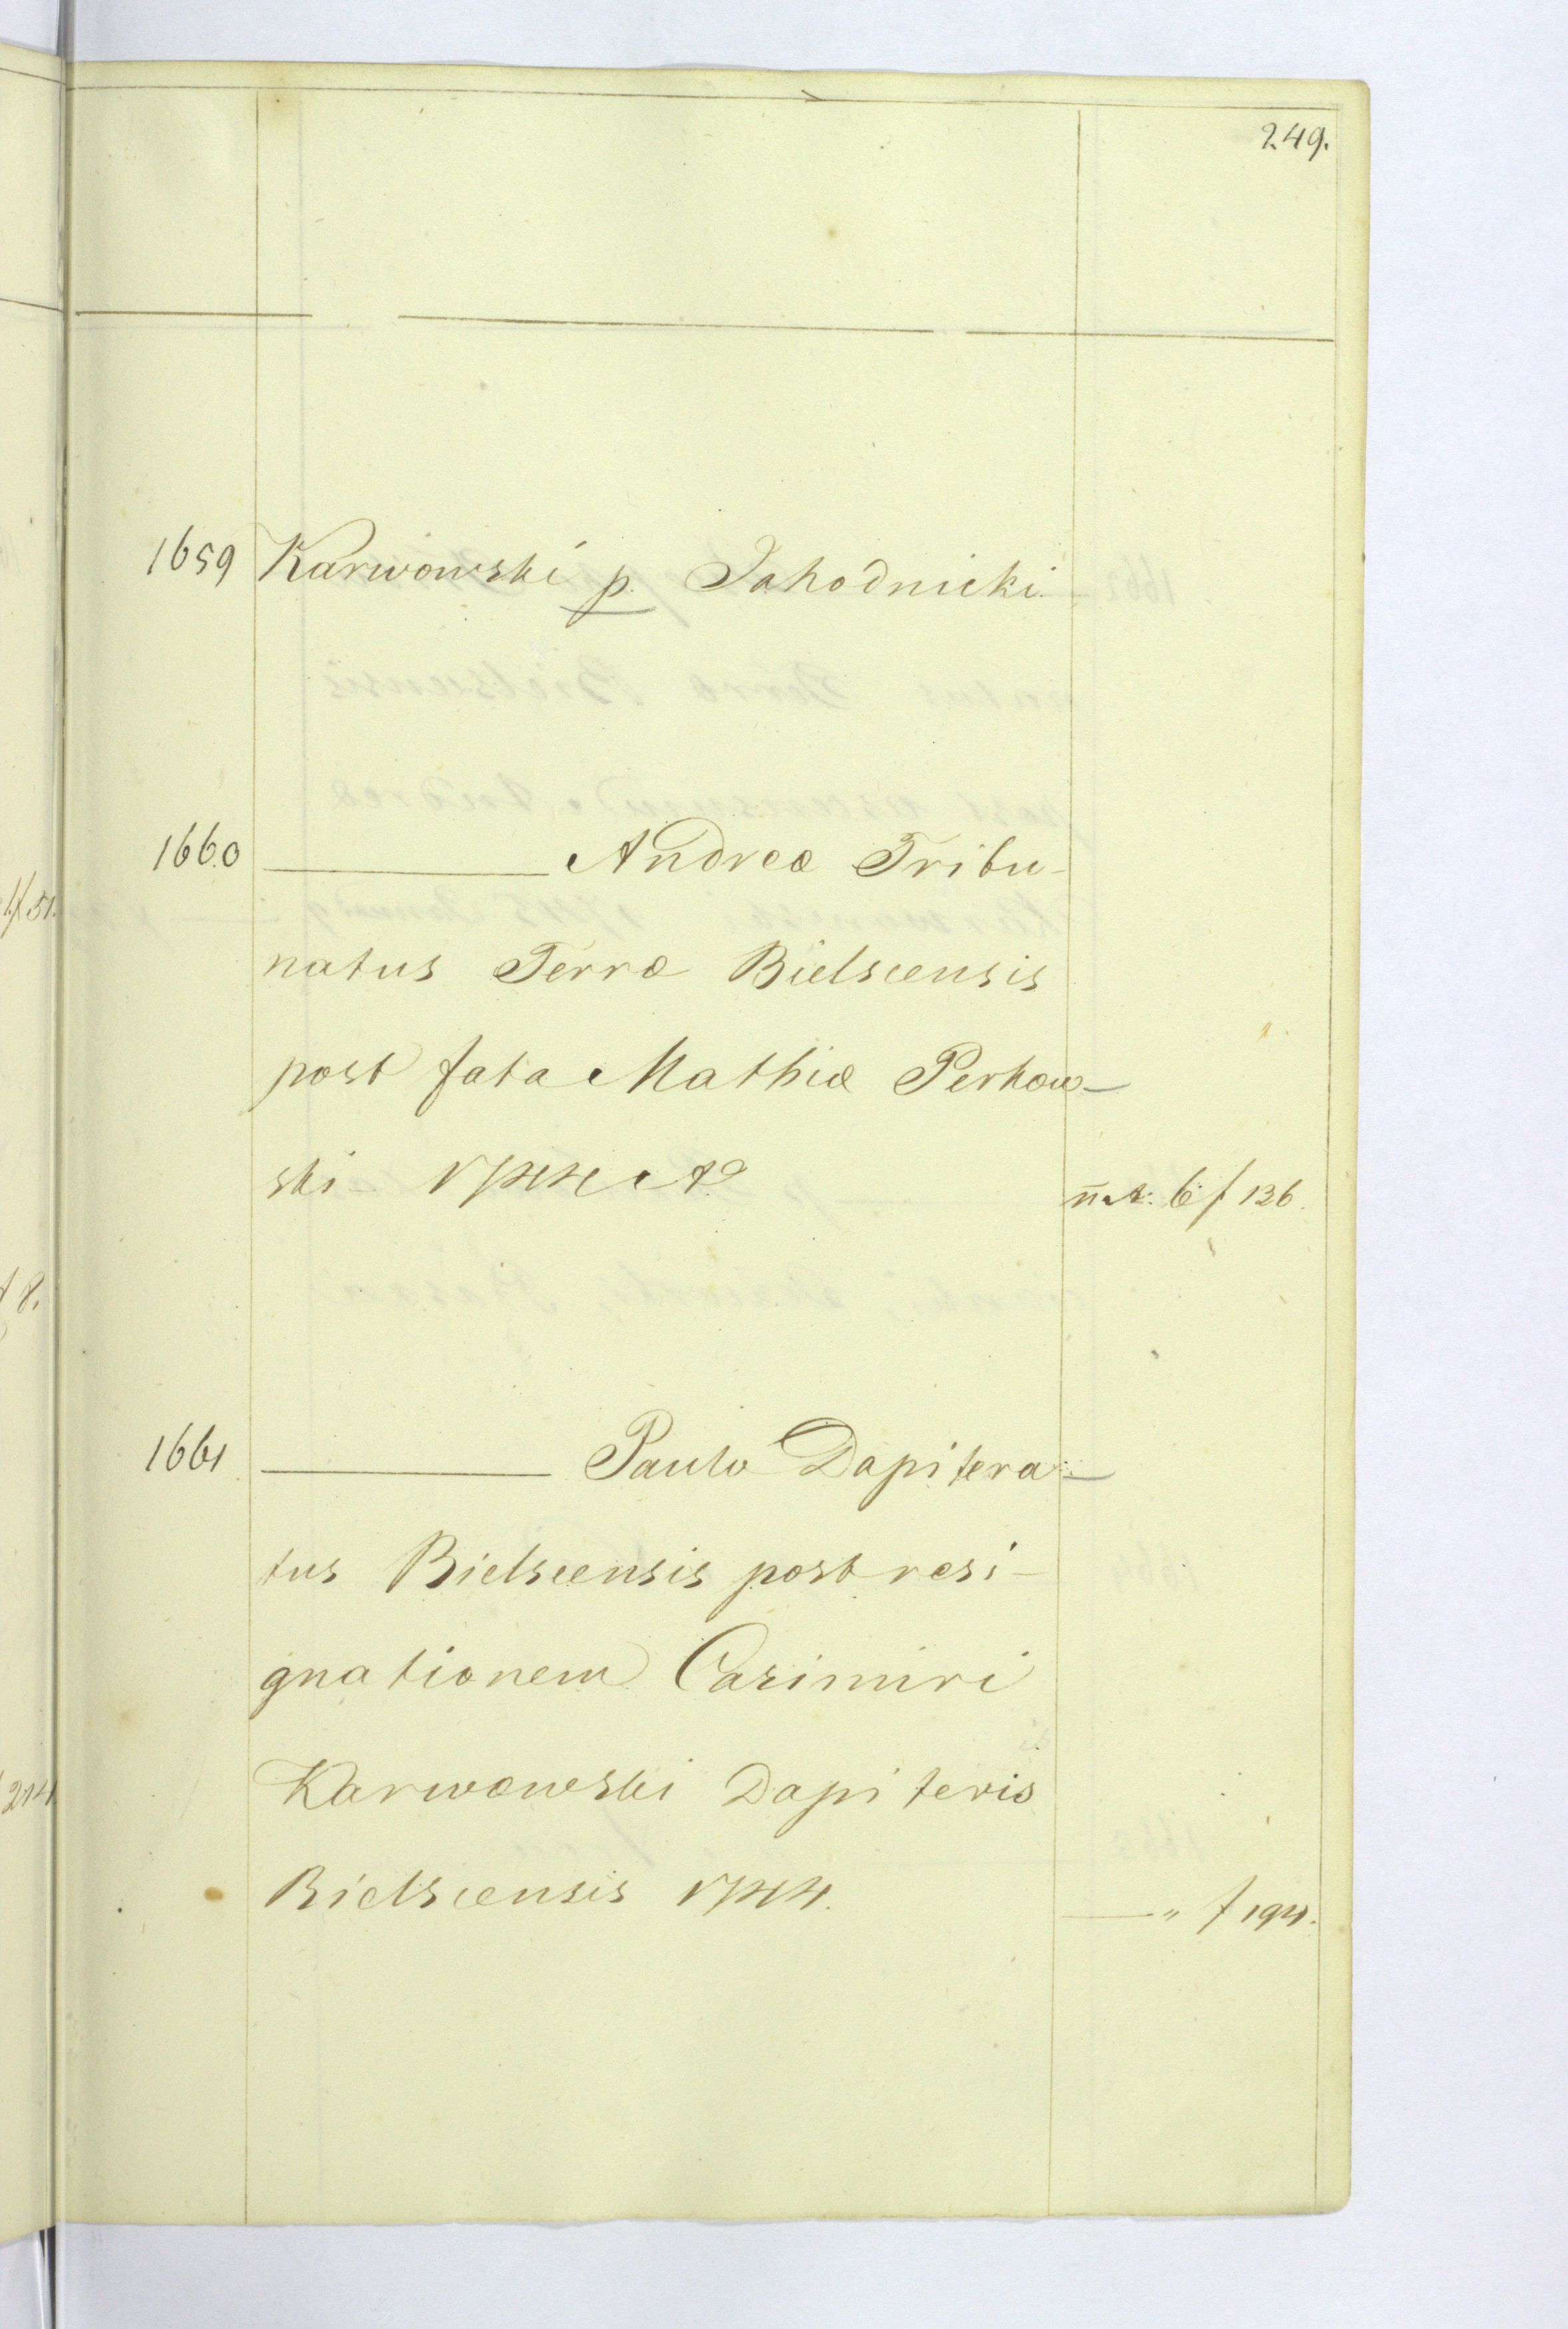 249.
1659 Karwowski p. Jahodnicki
1660 ——— Andreæ Tribu-
natus Terræ Bielscensis
post fata Mathiæ Perkow-
ski 1744 Ao
n. 6 f 136.
1661 ——— Paulo Dapifera-
tus Bielscensis post resi-
gnationem Casimiri
Karwowski Dapiferis
Bielscensis 1744.
——— " f 194.